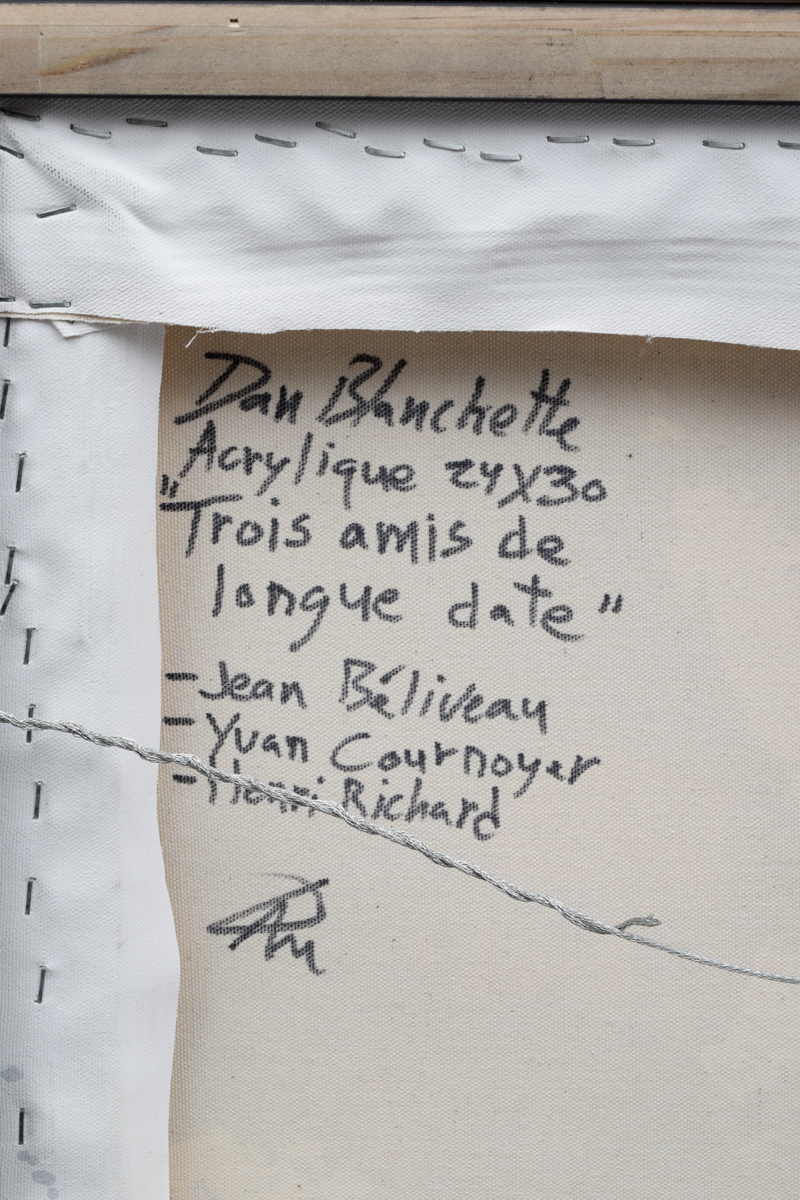 Dan Blanchette
Acrylique 24X30
"Trois amis de
longue date"
- Jean Béliveau
- Yvan Cournoyer
- Henri Richard